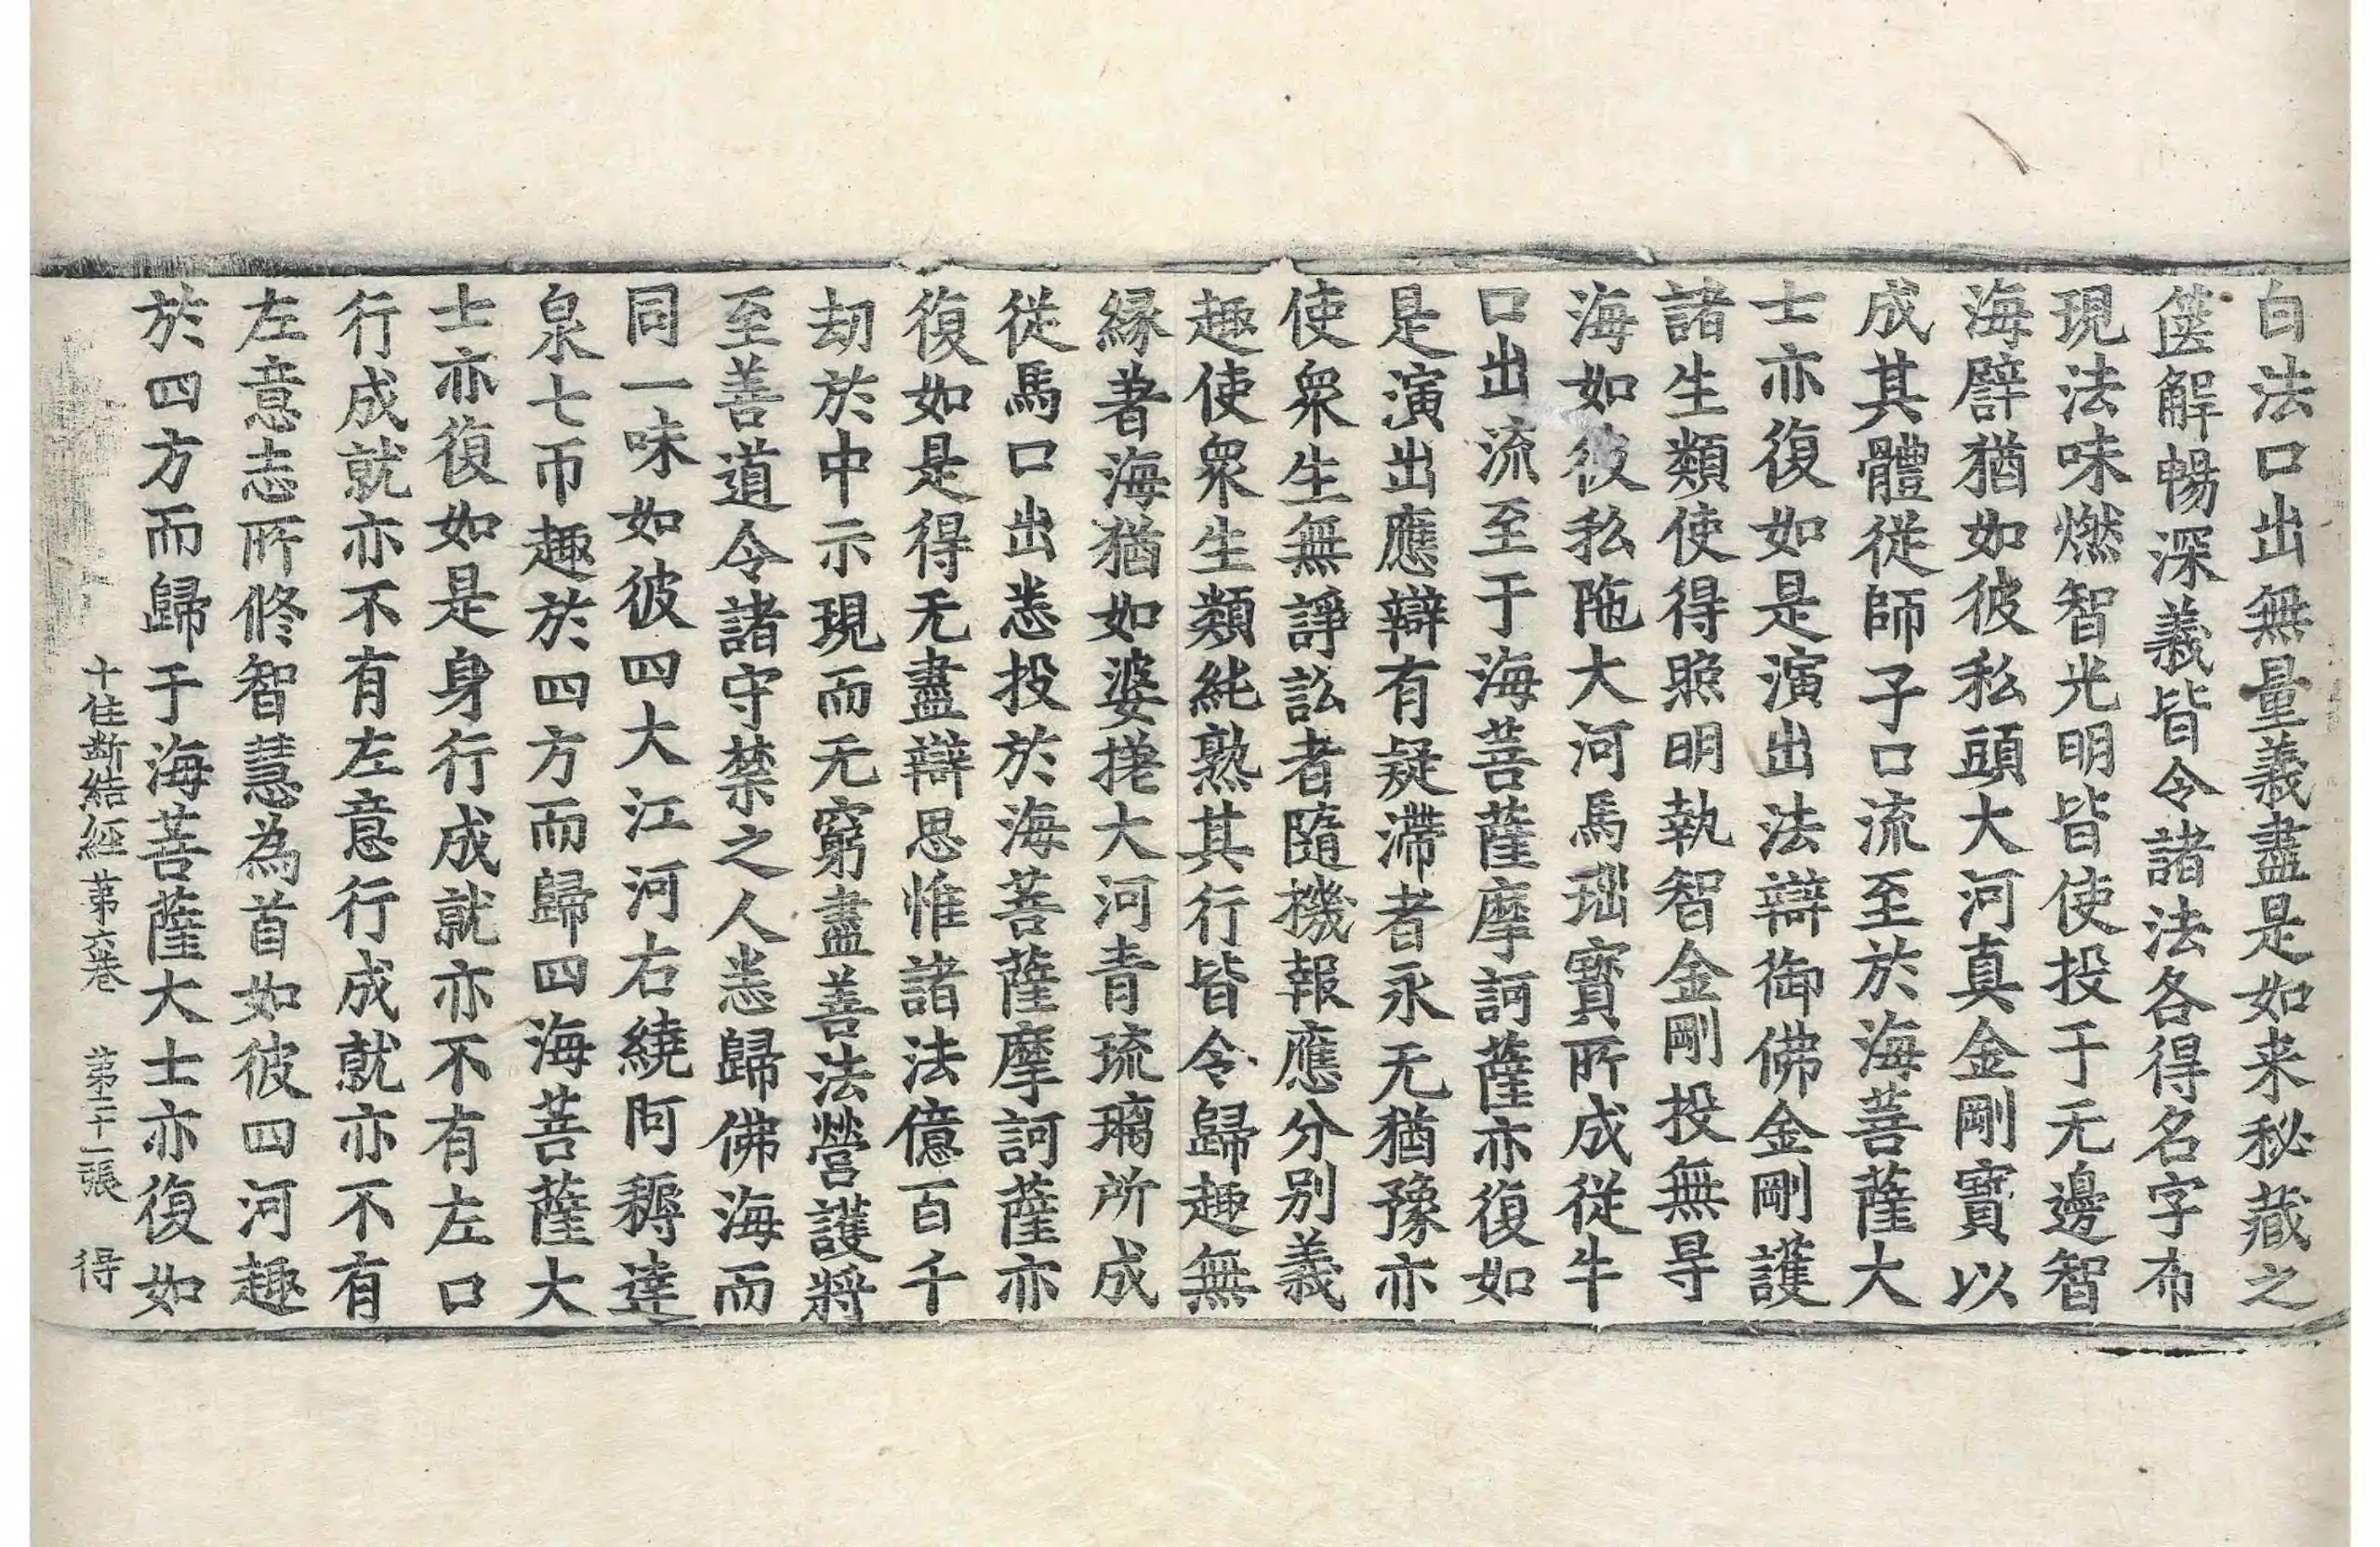 白法口出無量義盡是如来秘蔵之
箧解暢深義皆令諸法各得名字布
現法味燃智光明皆使投于无邊智
海譬猶如彼私頭大河真金剛寶以
成其體従師子口流至於海菩薩大
士亦復如是演出法辯御佛金剛護
諸生類使得照明執智金剛投無㝵
海如彼私陁大河馬瑙寶所成従牛
口出流至于海菩薩摩訶薩亦復如
是演出應辯有疑滯者永无猶豫亦
使衆生無諍訟者隨機報應分別義
趣使衆生類純熟其行皆令歸趣無
縁著海猶如婆搓大河青琉璃所成
従馬口出悉投於海菩薩摩訶薩亦
復如是得无盡辯思惟諸法億百千
劫於中示現而无窮盡善法營護將
至善道令諸守禁之人悉歸佛海而
同一味如彼四大江河右繞阿耨達
泉七帀趣於四方而歸四海菩薩大
士亦復如是身行成就亦不有左口
行成就亦不有左意行成就亦不有
左意志所修智慧為首如彼四河趣
於四方而歸于海菩薩大士亦復如
十住斷結經第六巻 第二十一張 得